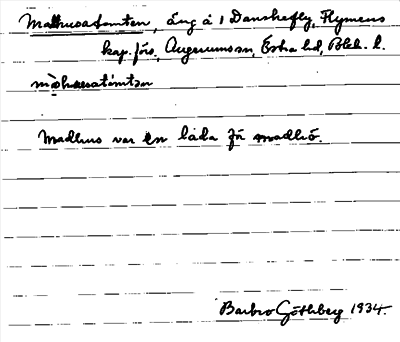 Madhusatomten, äng å 1 Danskefly, Flymens
kap. förs., Augerums sn, Östra hd, Blek. l.
Madhus var en låda för madhö.
Barbro Götherg 1934.